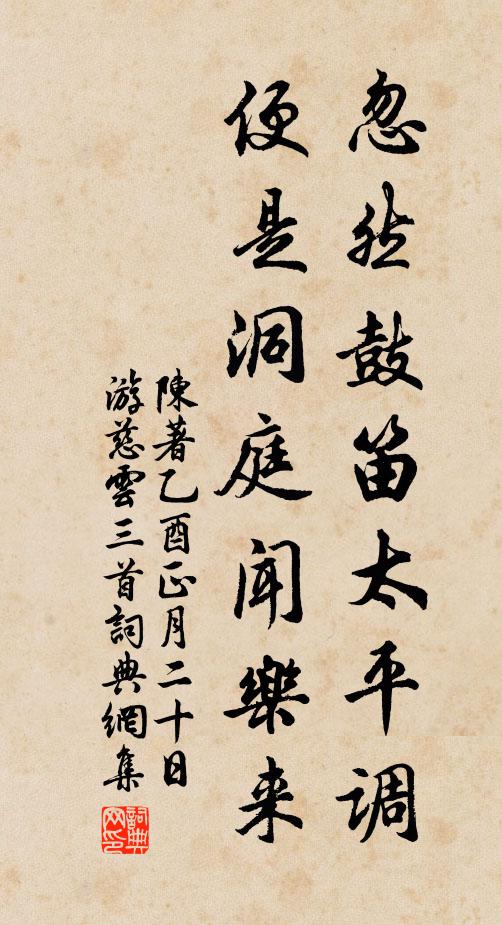 忽然鼓笛太平调
便是洞庭闻樂来
陳著乙酉正月二十日
游慈雲三首詞典網集
詞典
网印